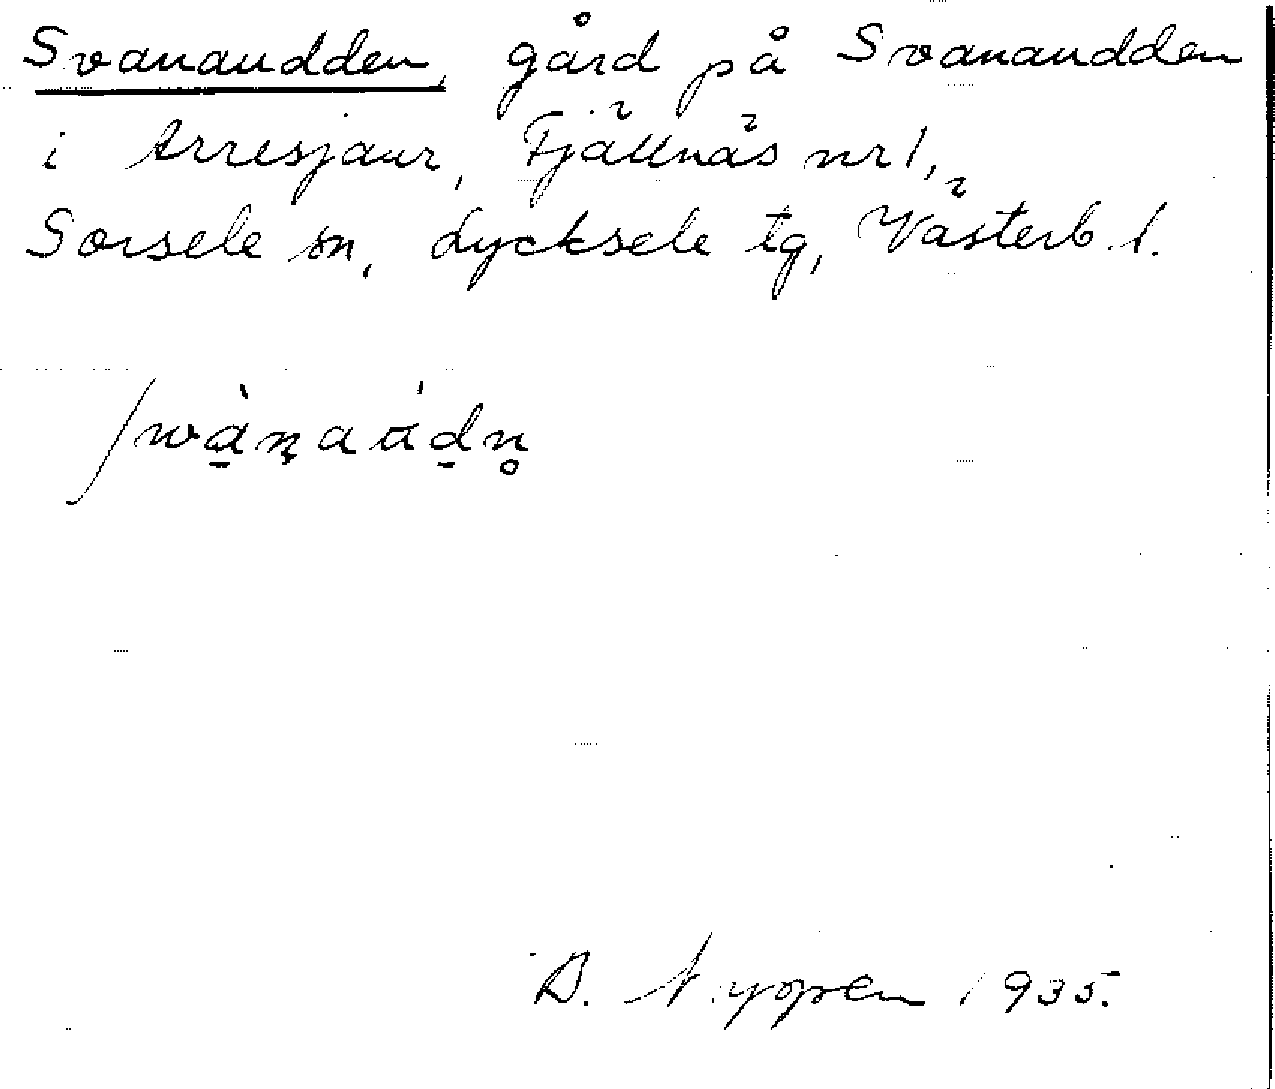 Svanaudden, gård på Svanaudden
i Arresjaur, Fjällnäs nr 1,
Sorsele sn, Lycksele tg, Västerb. l.
1935.